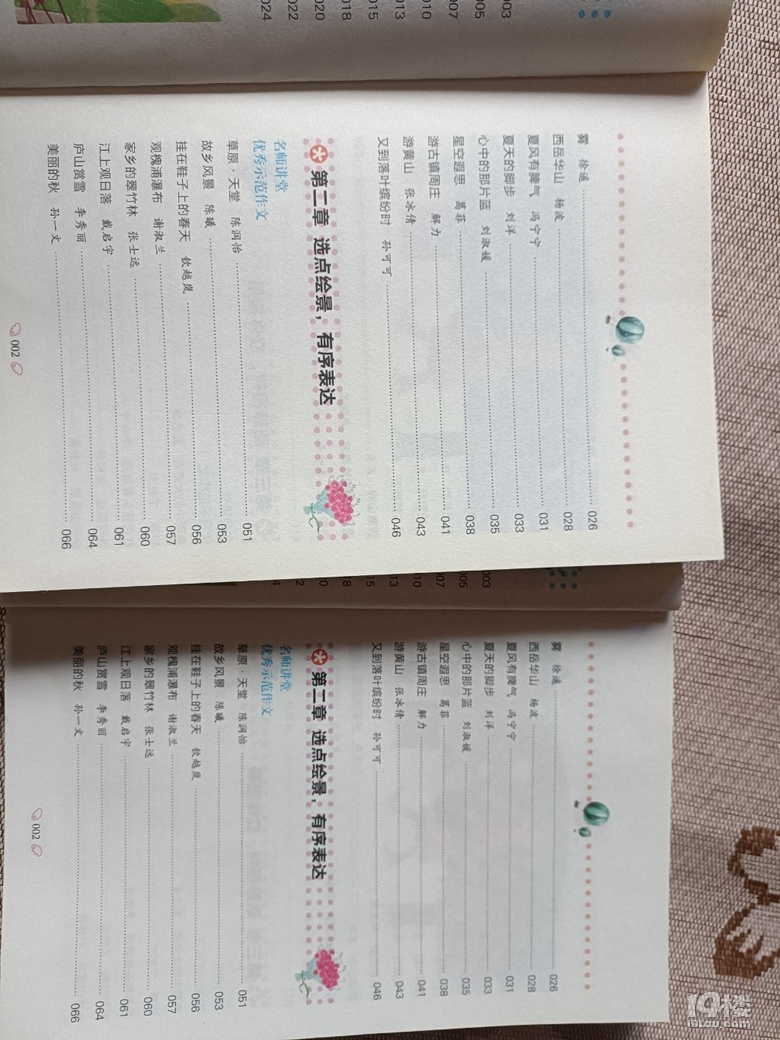 003
005
007
010
013
015
018
020
022
024
雾 徐遥 026
西岳华山 杨波 028
夏风有脾气 冯宁宁 031
夏天的脚步 刘洋 033
心中的那片蓝 刘淑媛 035
星空遐思 葛菲 038
游古镇周庄 解力 041
游黄山 张冰倩 043
又到落叶缤纷时 孙可可 046
第二章 选点绘景，有序表达
名师讲堂
优秀示范作文
草原·天堂 陈润怡 051
故乡风景 陈曦 053
挂在鞋子上的春天 056
观槐浦瀑布 谢淑兰 057
家乡的翠竹林 张士远 060
江上观日落 戴启宇 061
庐山赏雪 李秀丽 064
美丽的秋 孙一文 066
002
003
005
雾 徐遥 026
西岳华山 杨波 028
夏风有脾气 冯宁宁 031
夏天的脚步 刘洋 033
心中的那片蓝 刘淑媛 035
星空遐思 葛菲 038
游古镇周庄 解力 041
游黄山 张冰倩 043
又到落叶缤纷时 孙可可 046
第二章 选点绘景，有序表达
名师讲堂
优秀示范作文
草原·天堂 陈润怡 051
故乡风景 陈曦 053
挂在鞋子上的春天 056
观槐浦瀑布 谢淑兰 057
家乡的翠竹林 张士远 060
江上观日落 戴启宇 061
庐山赏雪 李秀丽 064
美丽的秋 孙一文 066
002
19楼
19lou.com